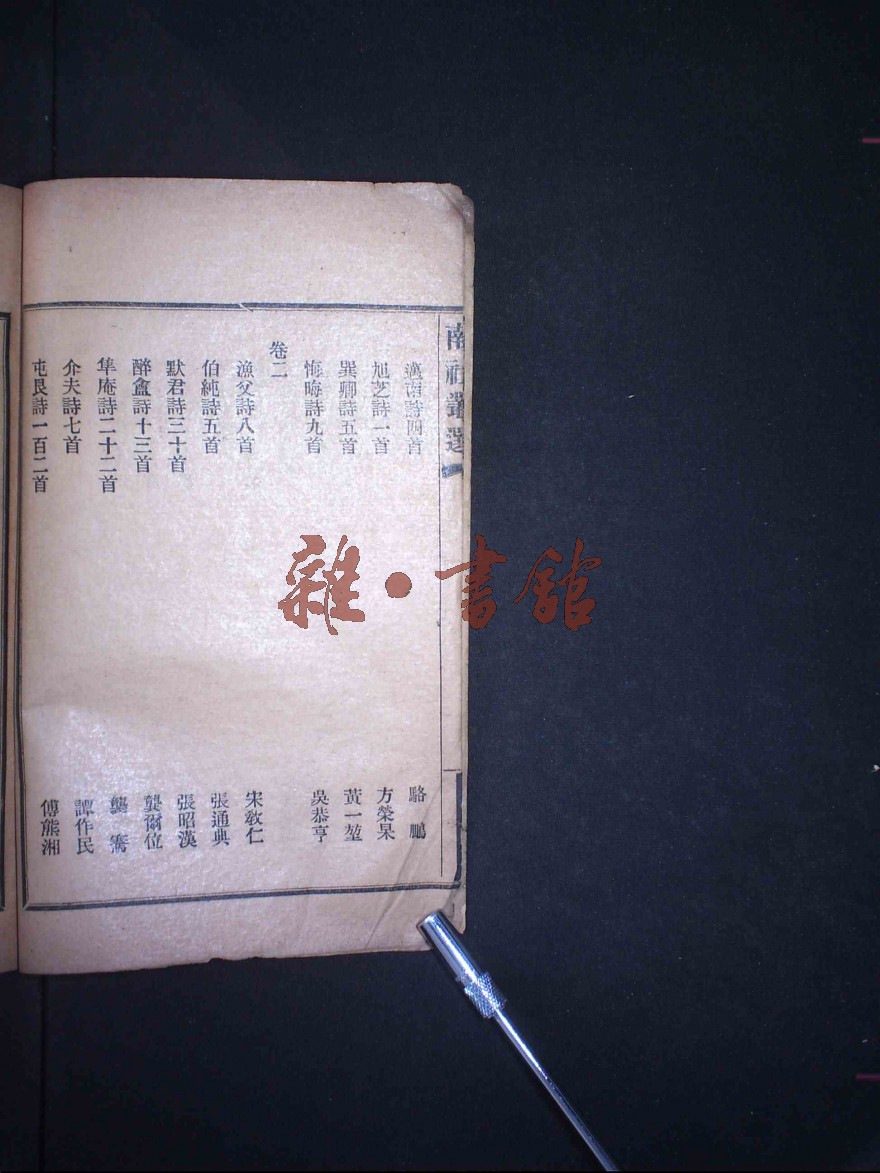 南社叢選
漢南詩四首 駱鵬
旭芝詩一首 方榮杲
巽卿詩五首 黃一堃
悔晦詩九首 吳恭亨
卷二
漁父詩八首 宋敎仁
伯純詩五首 張通典
默君詩三十首 張昭漢
醉盦詩十三首 龔爾位
隼庵詩二十二首 龔騫
介夫詩七首 譚作民
屯艮詩一百二首 傅熊湘
雜·書館